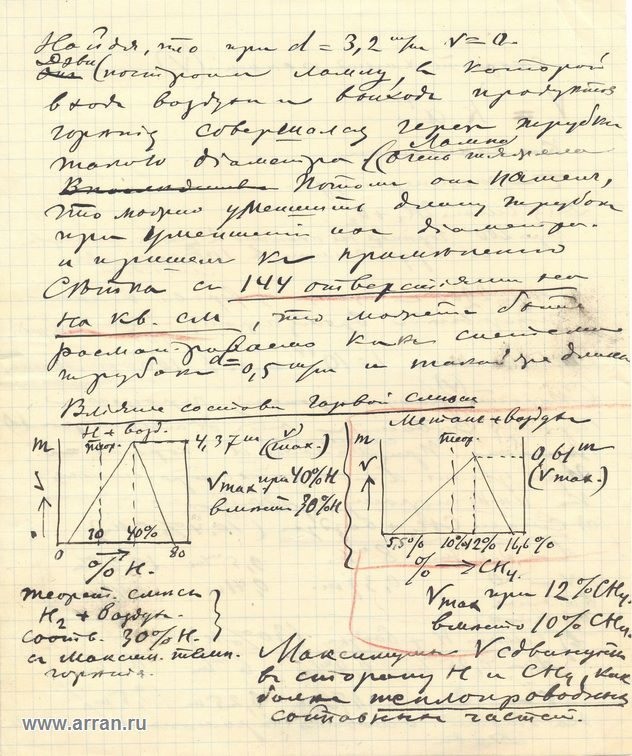 Найдя, что при d = 3,2 m/m v = 0.
Дэви (построил лампу, в которой
входъ воздуха и выходъ продуктов
горѣнія совершался через трубки
такого диаметра (Лампа
очень тяжела
Потом он нашел,
что можно уменьшить длину трубок
при уменьшении их диаметра.
и пришел к применению
Сѣтки съ 144 отверстиями на
на кв. см, что может быть
как система
трубок d = 0,5 m/m и такой же длины
Влияние состава горючей смеси
H + возд.
теор.
m
v
4,37 m (v max.)
v max. при 40% H
вместо 30% H
0 30 40% 80
% H.
Метанъ + воздухъ
теор.
m
v
0,61 m
(v max.)
5,5% 10% 12% 16,6 %
% CH4.
v max при 12% CH4.
вместо 10% CH4.
теорет. смесь
H2 + воздух.
соотв. 30% H.
съ максим. темп.
горѣнія.
Максимумы v сдвинуты
въ сторону H и CH4, как
более теплопроводных
составных частей.
www.arran.ru